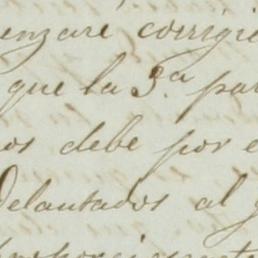 enzaré corrigie
que la 3.ª par
os debe por e
delantados al g